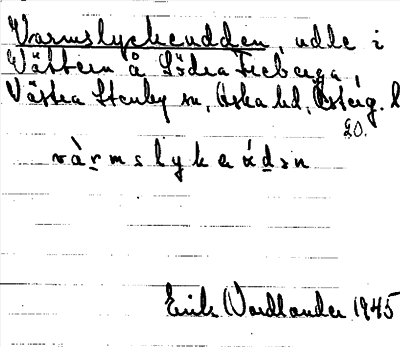 Varmslyckeudden, udde i
Vättern å Södra Freberga,
Västra Stenby sn, Aska hd, Österg. l
20.
vàrmslykeádən
Erik Nordlander 1945